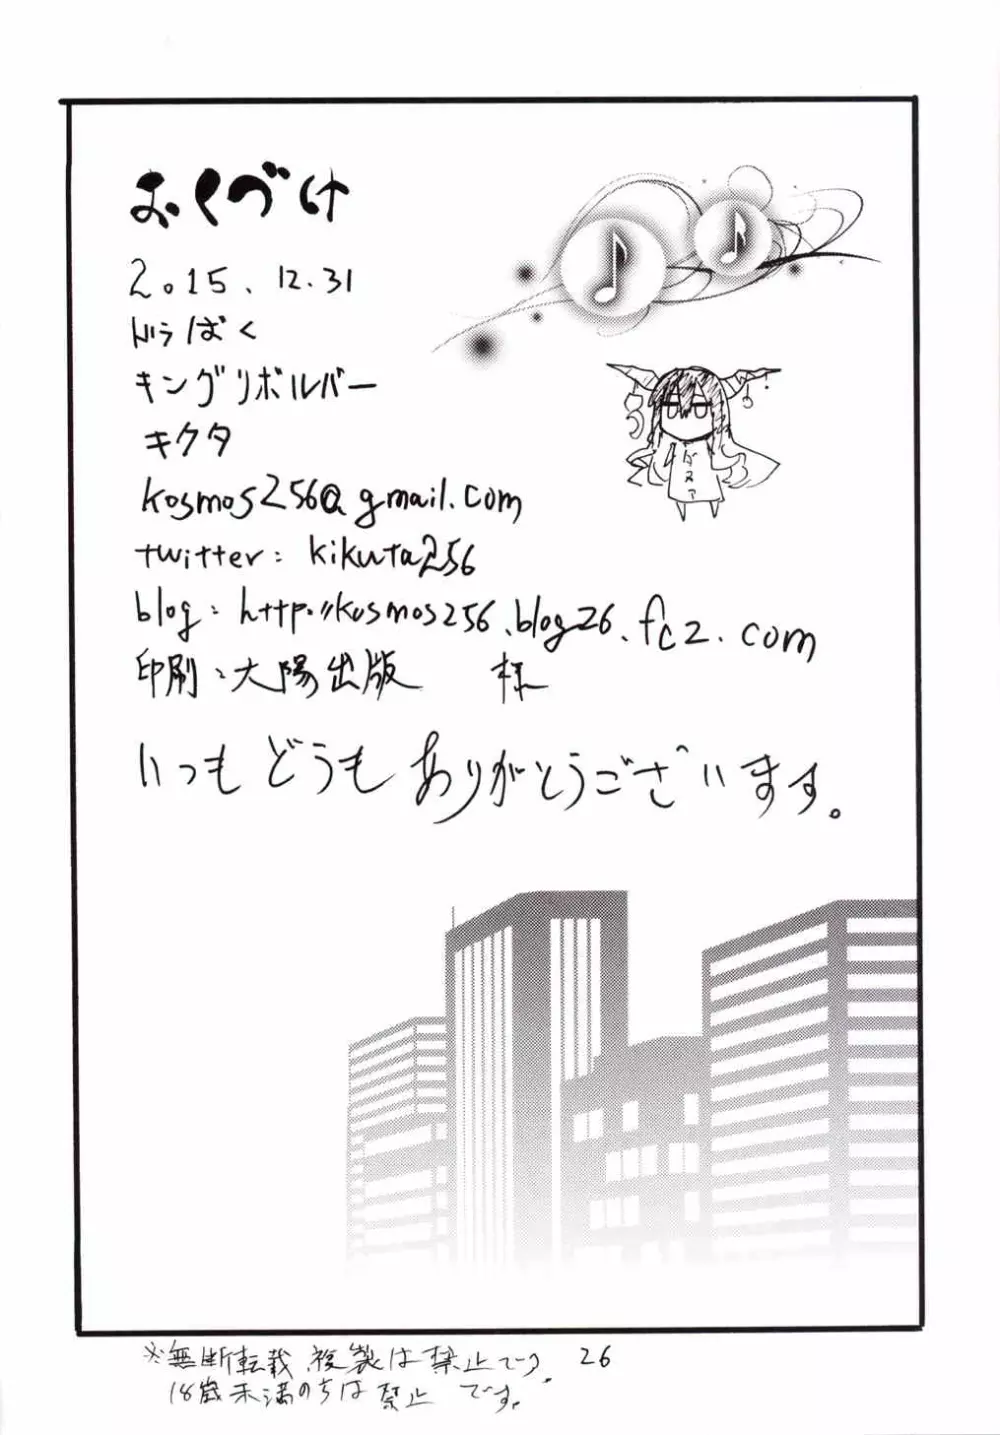 おくづけ
2015.12.31
ドラばく
キングリボルバー
キクタ
kosmos256@gmail.com
twitter: kikuta256
blog: http://kosmos256.blog26.fc2.com
印刷：大陽出版 様
いつもどうもありがとうございます。
※無断転載、複製は禁止です。
18歳未満の方は禁止です。
26